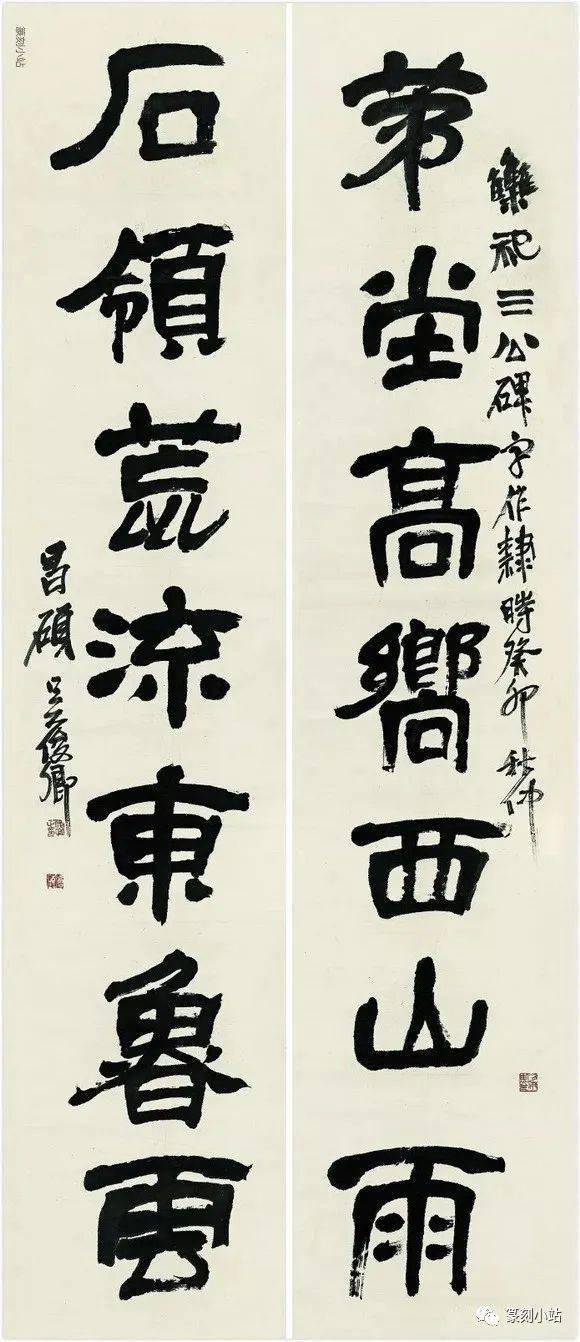 集祀三公碑字作隸時癸卯秋仲
苐堂高嚮西山雨
石領荒流東魯雲
昌碩吳俊卿
篆刻小站
篆刻小站